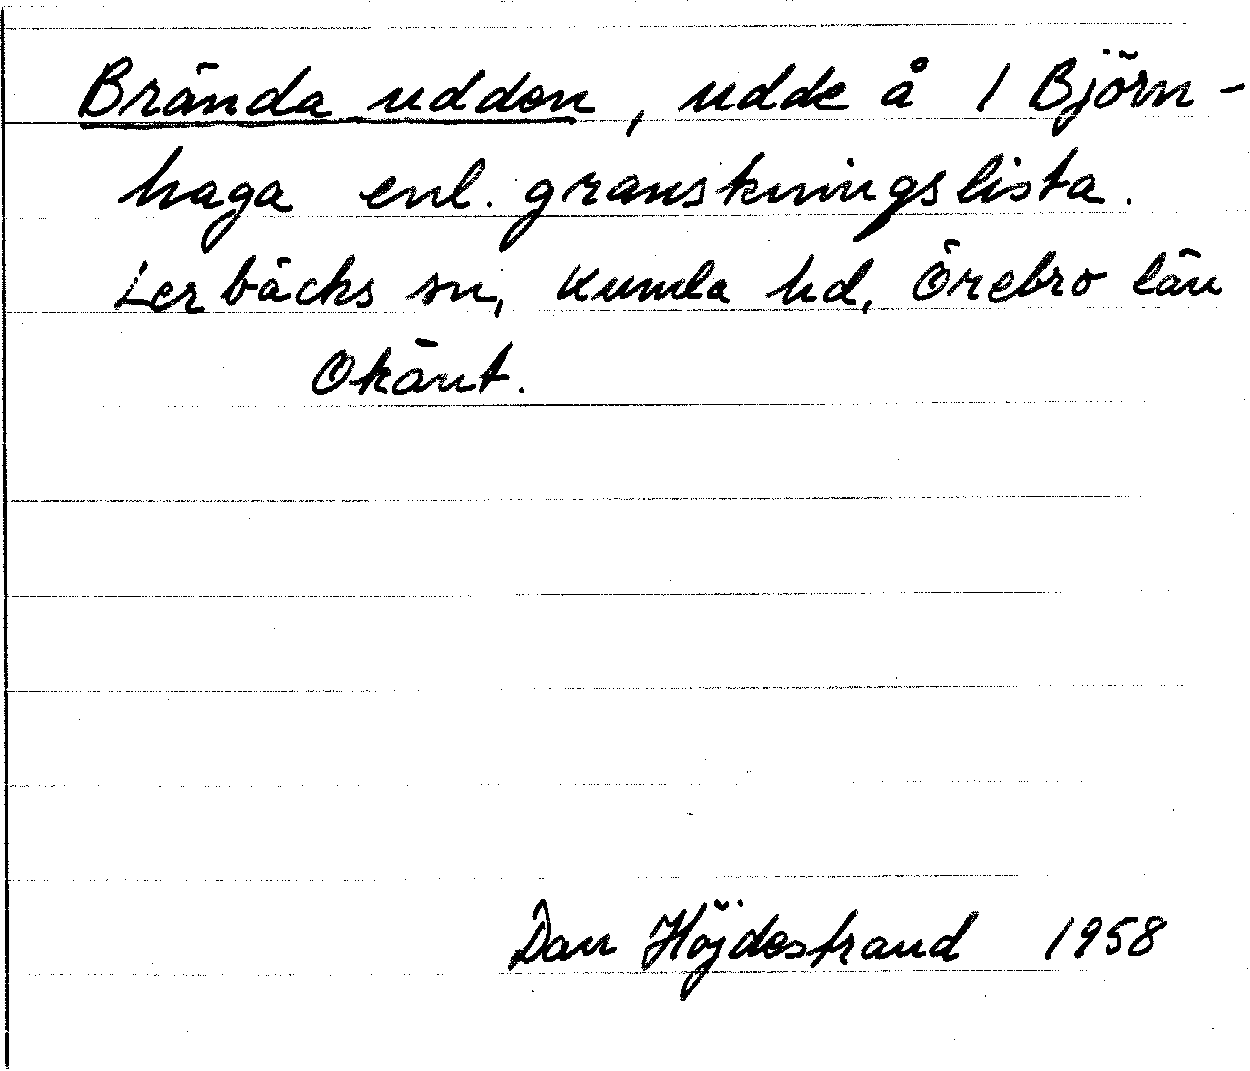 Brända udden, udde å 1 Björn-
haga enl. granskningslista.
Lerbäcks sn, Kumla hd, Örebro län
Okänt.
Dan Höjdestrand 1958